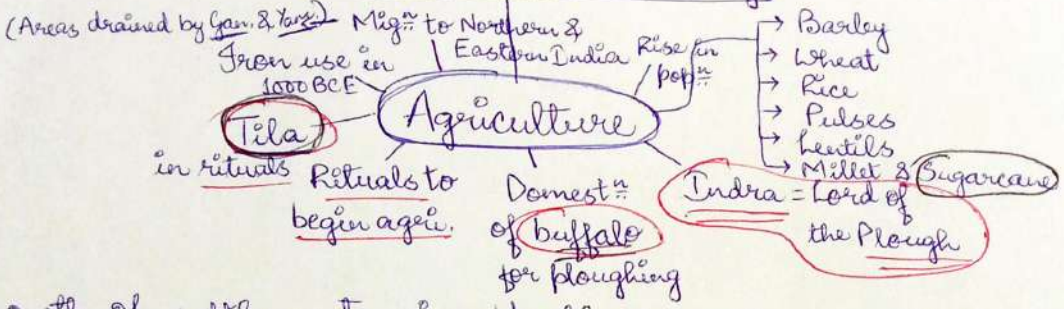 (Areas drained by Gan. & Yam.)
Mig.n to Northern &
Eastern India
Iron use in
1000 BCE
Rise in
pop.n
Agriculture
Barley
Wheat
Rice
Pulses
Lentils
Millet & Sugarcane
Tila
in rituals
Rituals to
begin agri.
Domest.n
of buffalo
for ploughing
Indra = Lord of
the Plough